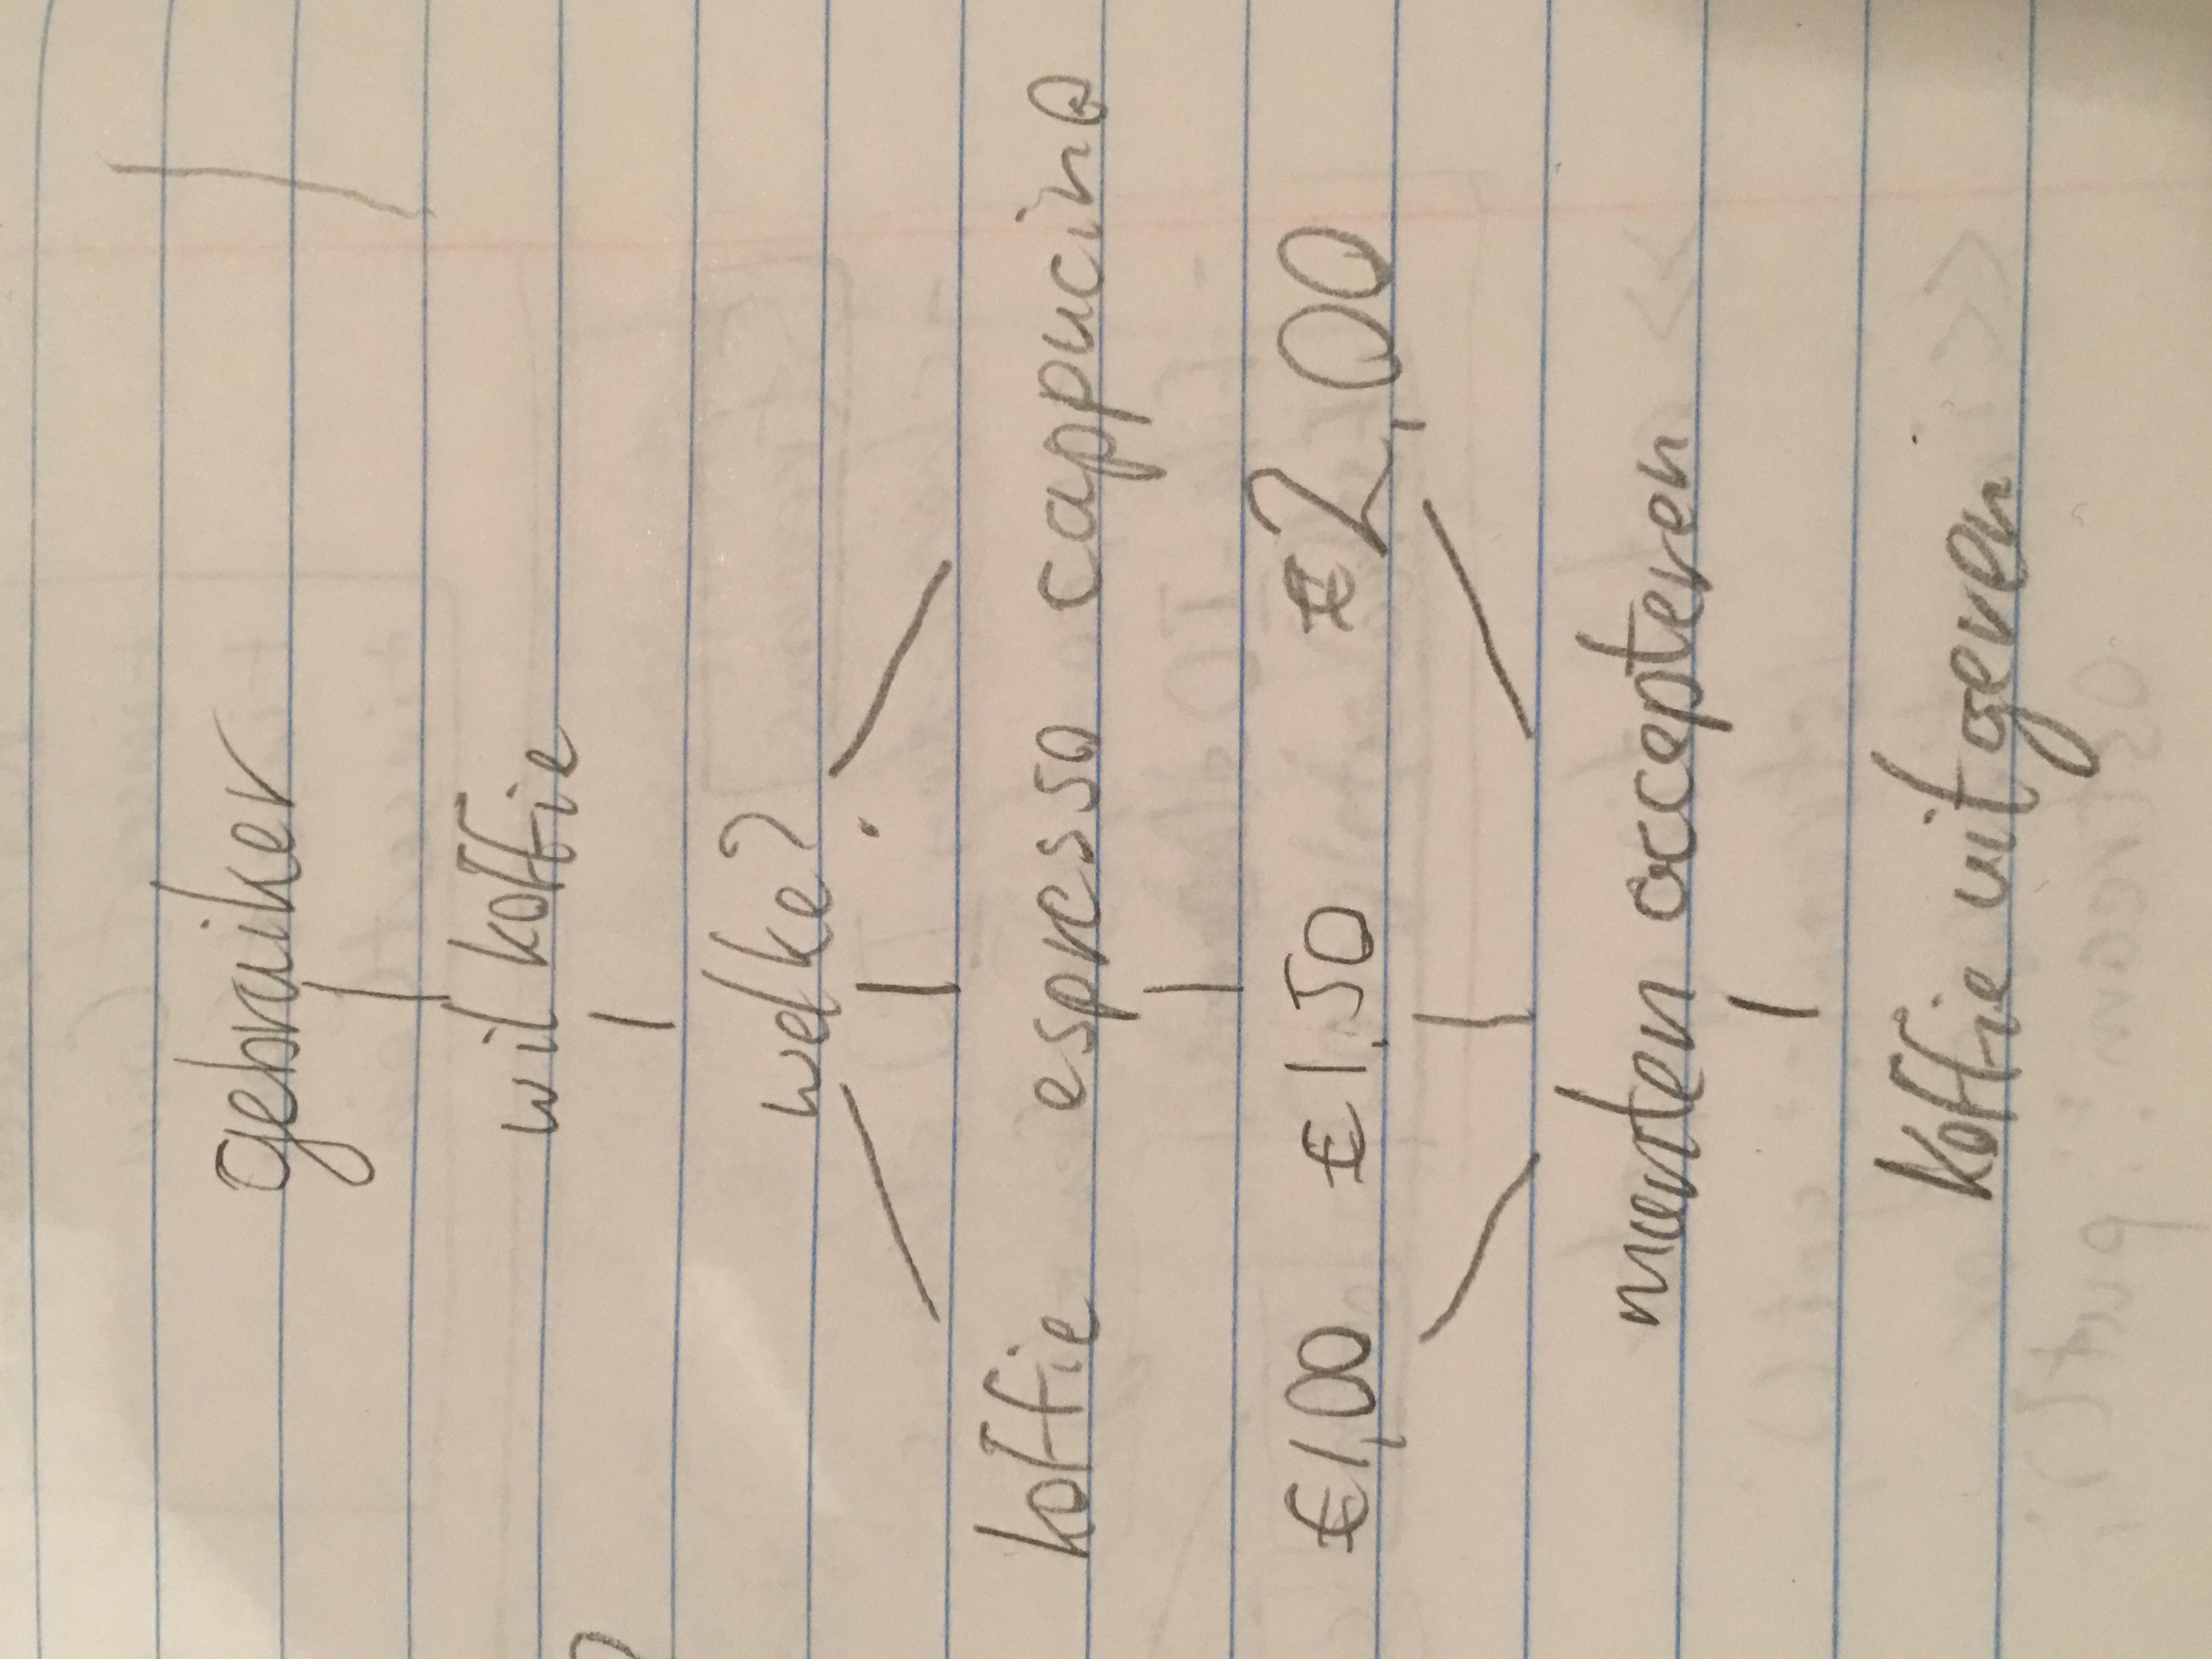 gebruiker
wil koffie
welke?
koffie espresso cappucino
€1,00 €1,50 €2,00
munten accepteren
Koffie uitgeven